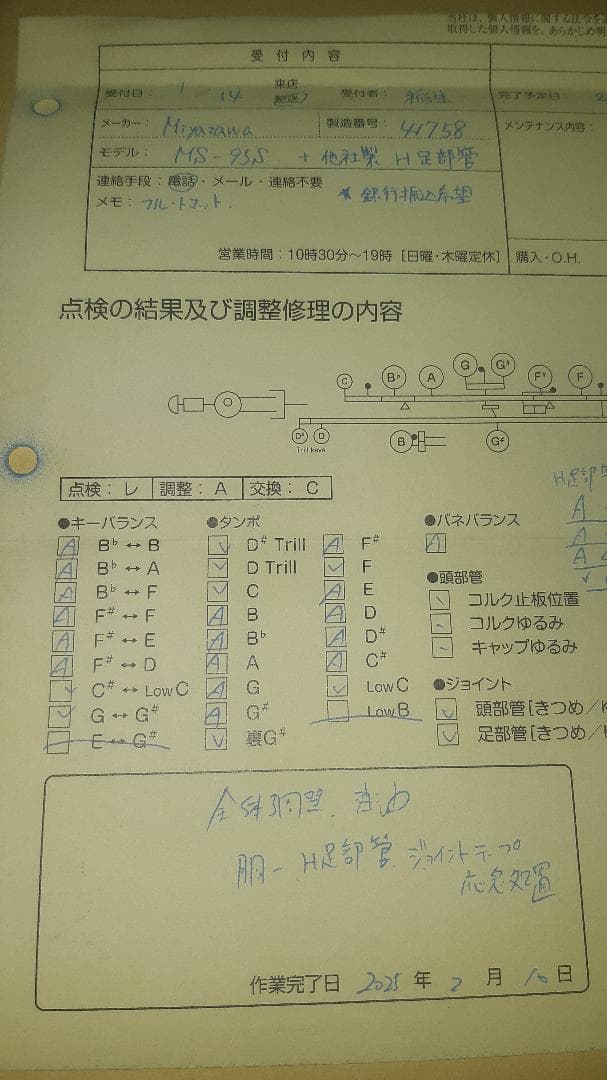 当社は、個人情報に関する法令を
取得した個人情報を、あらかじめ明
受付内容
受付日： 1/14 来店 配送 受付者： 完了予定日 2
メーカー： Miyazawa 製造番号： 41758 メンテナンス内容：
モデル： MS-95S + 他社製 H足部管
連絡手段：電話・メール・連絡不要 * 銀行振込希望
メモ： フルートコット.
営業時間：10時30分〜19時［日曜・木曜定休］ 購入・O.H.
点検の結果及び調整修理の内容
C B♭ A G G# F# F
D# D B G#
Trill keys
点検：レ 調整：A 交換：C
H足部管
A
A
A
●キーバランス ●タンポ ●バネバランス
A B♭ ↔ B レ D# Trill A F# A
A B♭ ↔ A レ D Trill レ F ●頭部管
A B♭ ↔ F レ C A E コルク止板位置
A F# ↔ F A B A D コルクゆるみ
A F# ↔ E A B♭ A D# キャップゆるみ
A F# ↔ D A A A C# ●ジョイント
レ C# ↔ Low C A G レ Low C レ 頭部管［きつめ／
レ G ↔ G# A G# Low B レ 足部管［きつめ／
E ↔ G# レ 裏G#
全体調整、注油
胴-H足部管 ジョイントテープ
応急処置
作業完了日 2025 年 2 月 10 日